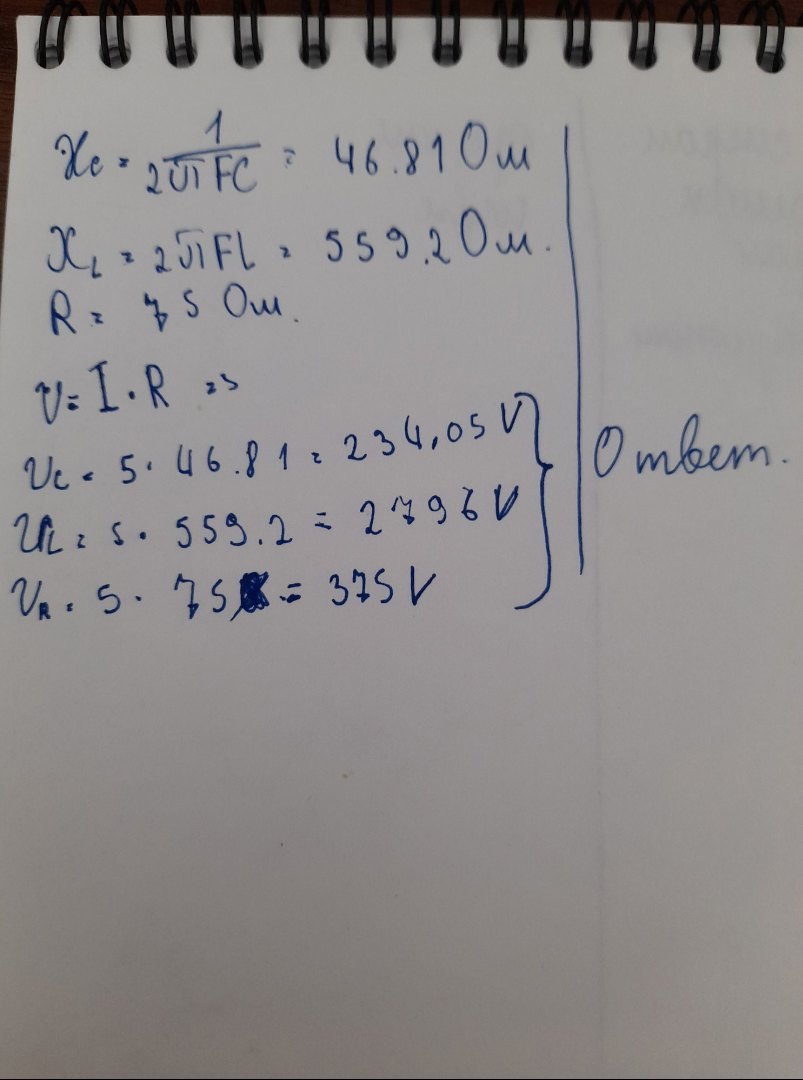 Xc = 1/2πFC = 46.81 Ом
XL = 2πFL = 559.2 Ом.
R = 75 Ом.
U = I · R =>
Uc = 5 · 46.81 = 234,05 V
UL = 5 · 559.2 = 2796 V
UR = 5 · 75 = 375 V
Ответ.